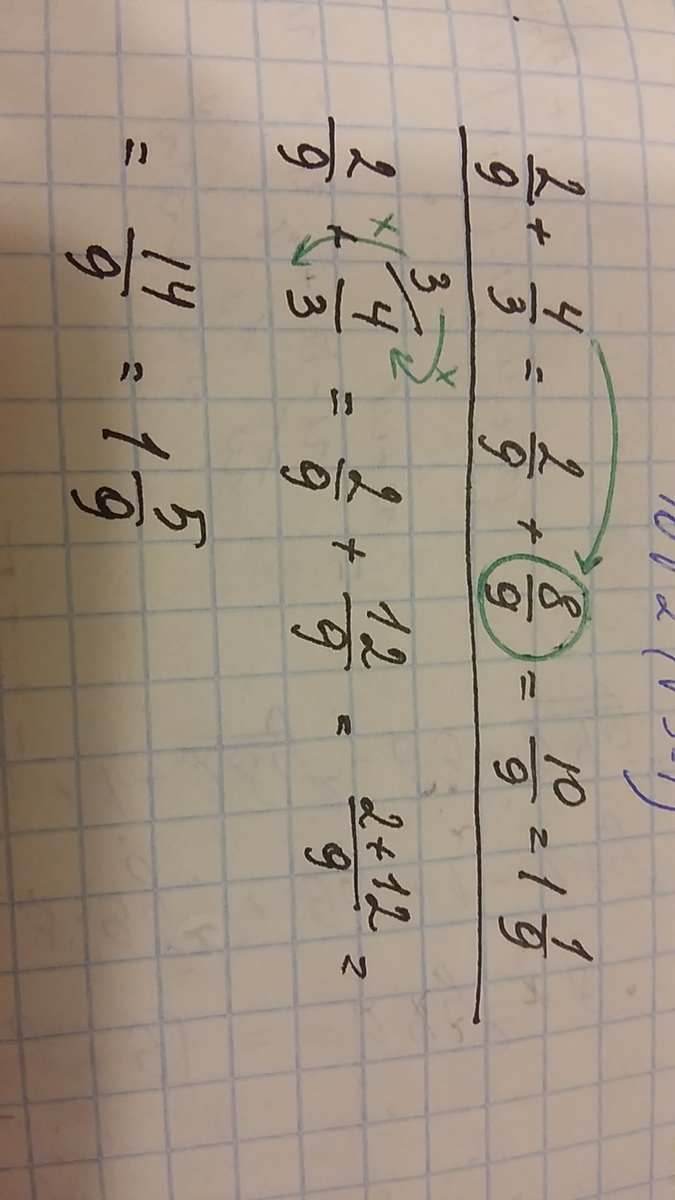 2/9 + 4/3 = 2/9 + 8/9 = 10/9 = 1 1/9
2/9 + 4/3 \3 = 2/9 + 12/9 = (2+12)/9 =
= 14/9 = 1 5/9